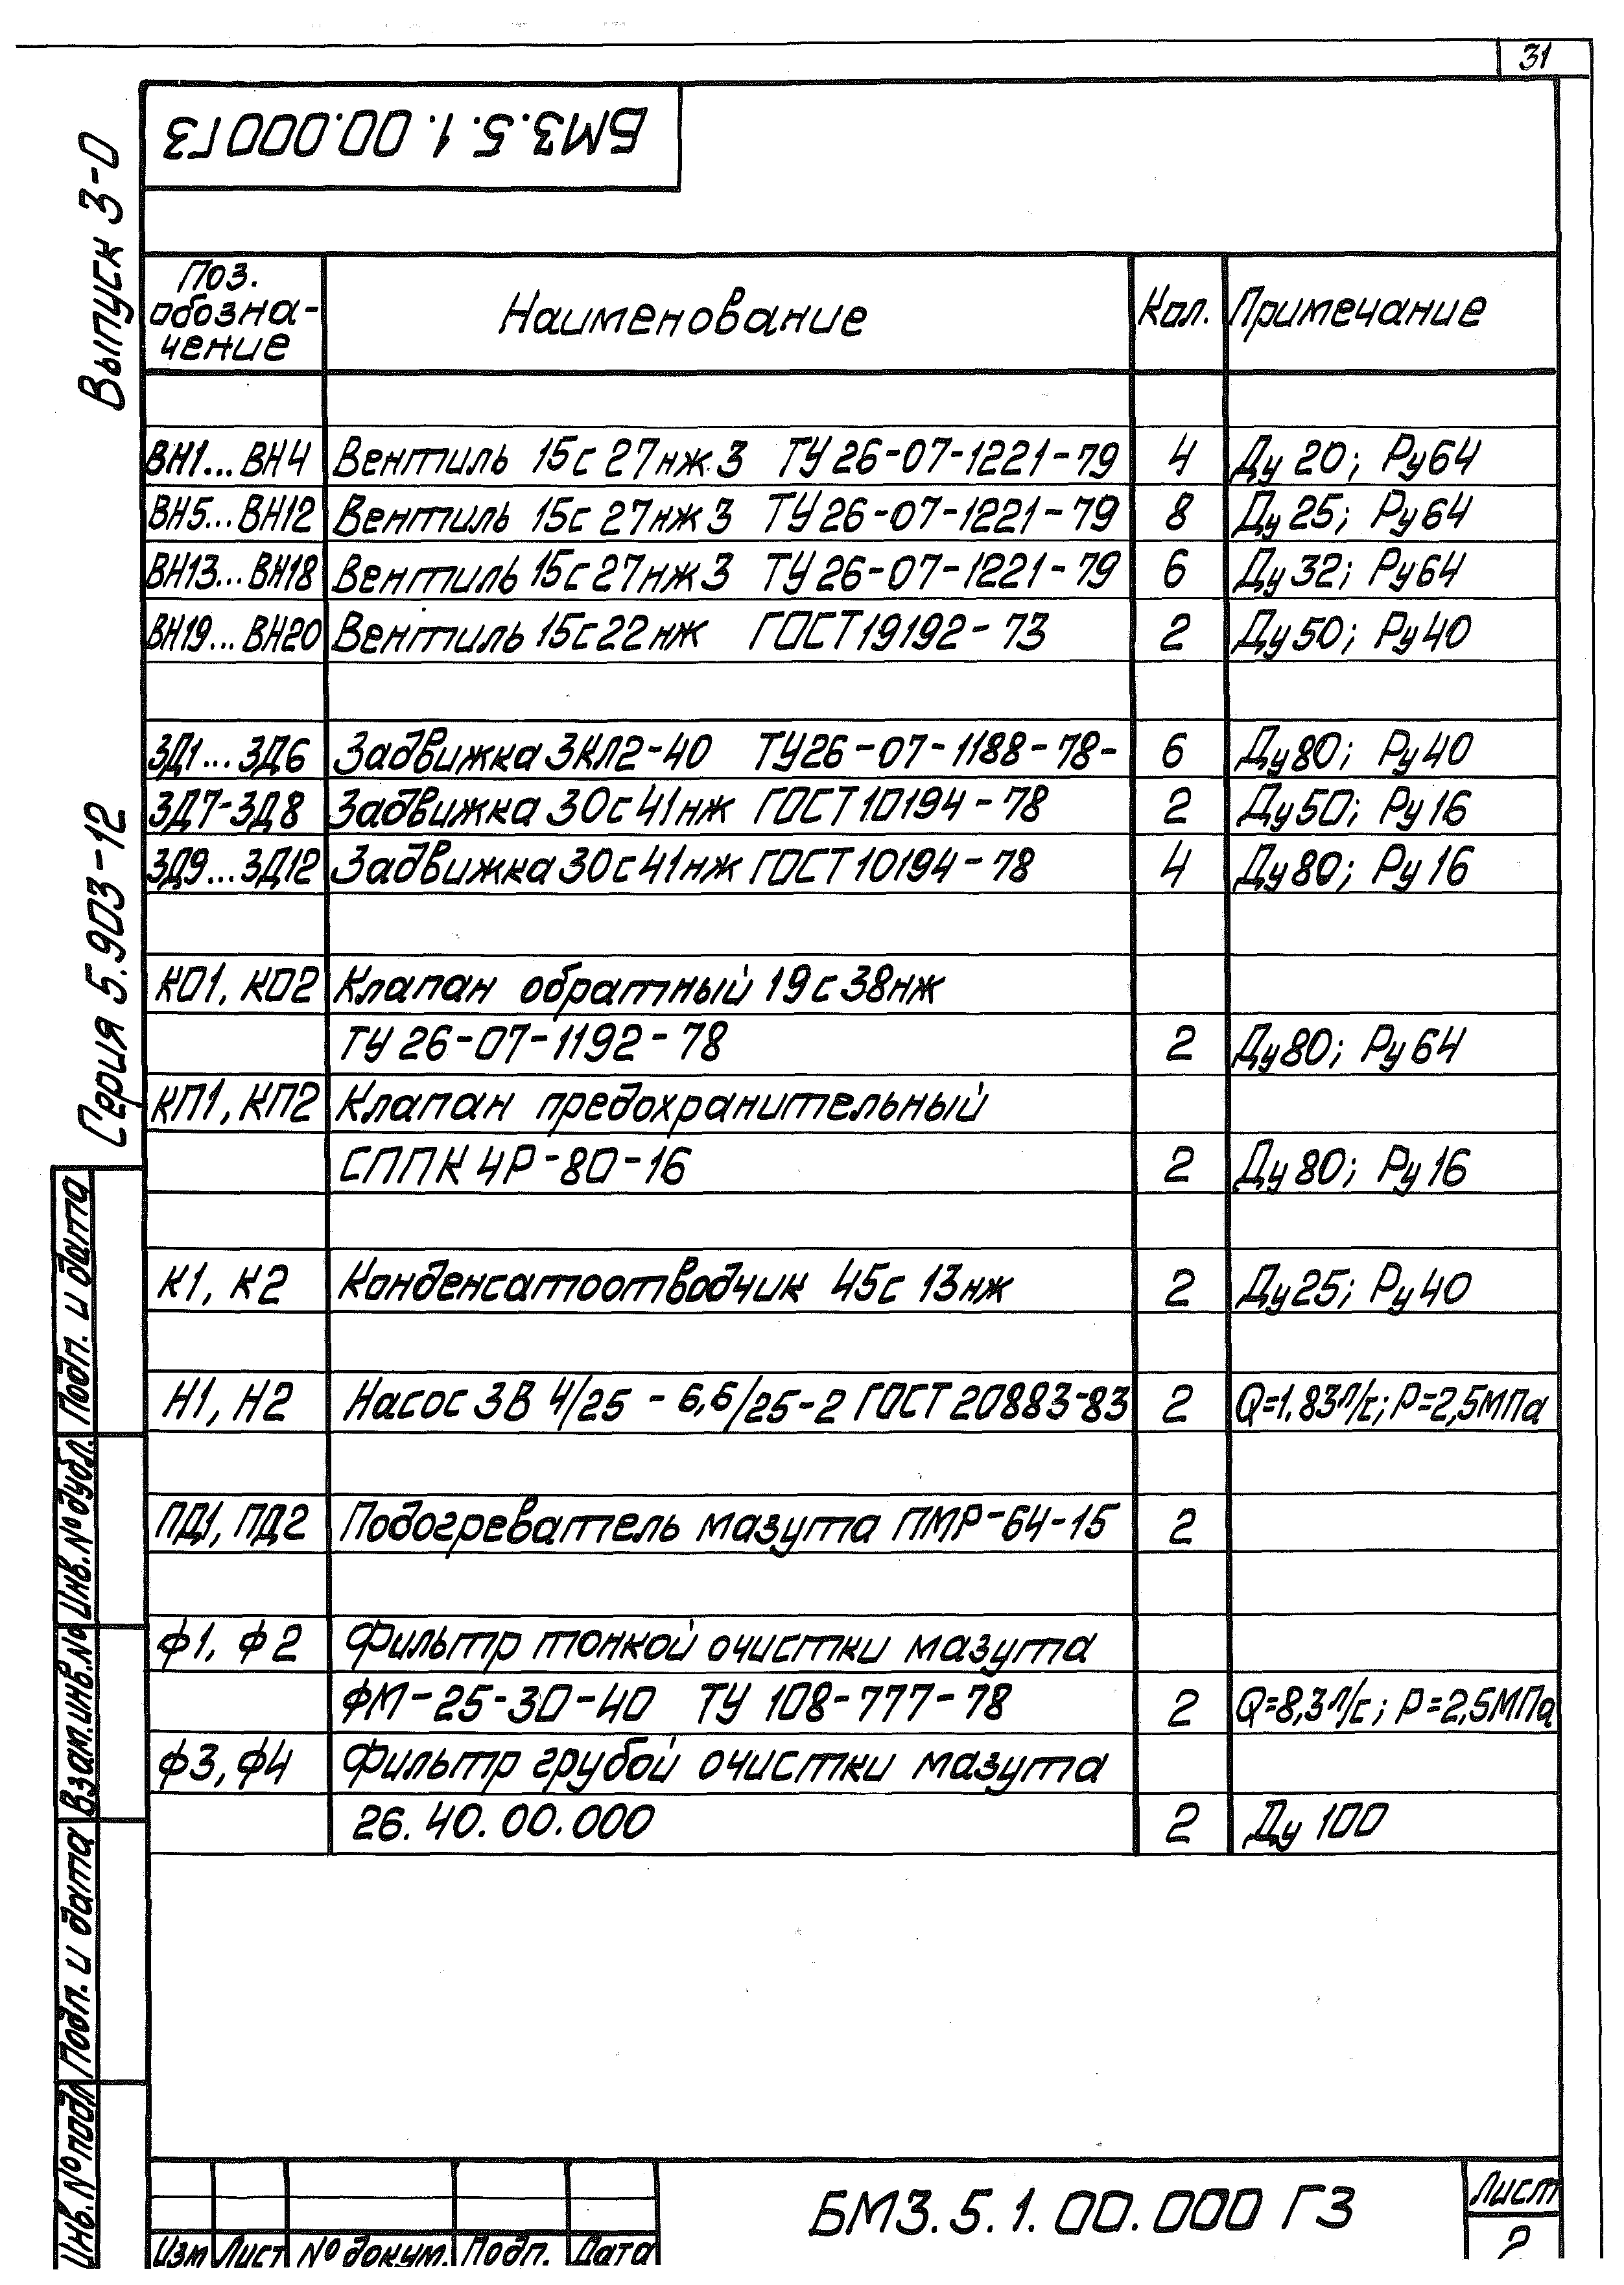 31
БМЗ.5.1.00.000ГЗ
Выпуск 3-0
Серия 5.903-12
Поз. обозна-чение Наименование Кол. Примечание
ВН1...ВН4 Вентиль 15с27нж3 ТУ26-07-1221-79 4 Ду20; Ру64
ВН5...ВН12 Вентиль 15с27нж3 ТУ26-07-1221-79 8 Ду25; Ру64
ВН13...ВН18 Вентиль 15с27нж3 ТУ26-07-1221-79 6 Ду32; Ру64
ВН19...ВН20 Вентиль 15с22нж ГОСТ19192-73 2 Ду50; Ру40
ЗД1...ЗД6 Задвижка ЗКЛ2-40 ТУ26-07-1188-78- 6 Ду80; Ру40
ЗД7-ЗД8 Задвижка 30с41нж ГОСТ10194-78 2 Ду50; Ру16
ЗД9...ЗД12 Задвижка 30с41нж ГОСТ10194-78 4 Ду80; Ру16
КО1, КО2 Клапан обратный 19с38нж
ТУ26-07-1192-78 2 Ду80; Ру64
КП1, КП2 Клапан предохранительный
СППК4Р-80-16 2 Ду80; Ру16
К1, К2 Конденсатоотводчик 45с13нж 2 Ду25; Ру40
Н1, Н2 Насос 3В 4/25-6,6/25-2 ГОСТ 20883-83 2 Q=1.83л/с; Р=2,5МПа
ПД1, ПД2 Подогреватель мазута ПМР-64-15 2
Ф1, Ф2 Фильтр тонкой очистки мазута
ФМ-25-30-40 ТУ 108-777-78 2 Q=8,3л/с; Р=2,5МПа
Ф3, Ф4 Фильтр грубой очистки мазута
26.40.00.000 2 Ду 100
Подп. и дата
Инв.№дубл.
Взам.инв.№
Подп. и дата
Инв.№подл
Изм Лист №докум. Подп. Дата
БМЗ.5.1.00.000 ГЗ
Лист
2